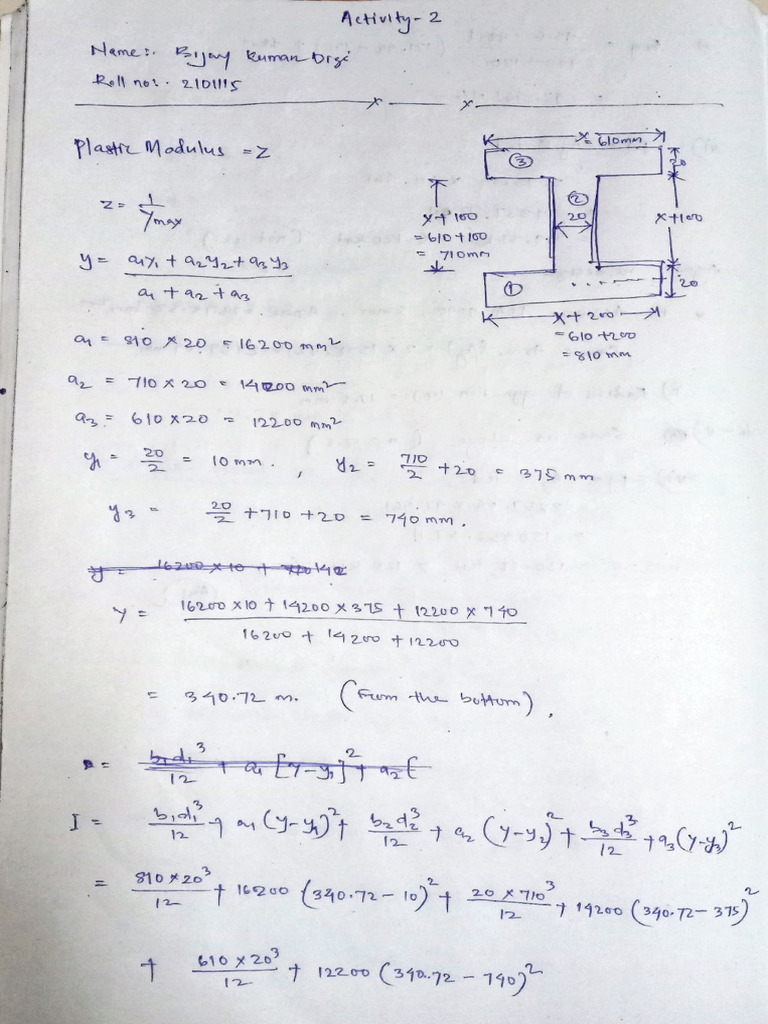 Activity-2
Name:. Bijay Kuman Orgi
Roll no:. 2101115
x x
Plastic Modulus = Z
Z = 1/Ymax
y = (a1y1 + a2y2 + a3y3)/(a1 + a2 + a3)
x = 610mm
③
20
②
20
x+100
= 610+100
= 710mm
x+100
①
20
x+200
= 610+200
= 810 mm
a1 = 810 x 20 = 16200 mm²
a2 = 710 x 20 = 14200 mm²
a3 = 610 x 20 = 12200 mm²
y1 = 20/2 = 10 mm. , y2 = 710/2 + 20 = 375 mm
y3 = 20/2 + 710 + 20 = 740 mm.
y = 16200 x 10 +
Y = (16200 x10 + 14200 x 375 + 12200 x 740)/(16200 + 14200 + 12200)
= 340.72 m. (From the bottom),
= b1d1³/12 + a1 [Y-y1]² + a2 [
I = b1d1³/12 + a1 (y-y1)² + b2d2³/12 + a2 (y-y2)² + b3d3³/12 + a3(y-y3)²
= 810 x 20³/12 + 16200 (340.72 - 10)² + 20 x 710³/12 + 14200 (340.72 - 375)²
+ 610 x 20³/12 + 12200 (340.72 - 740)²